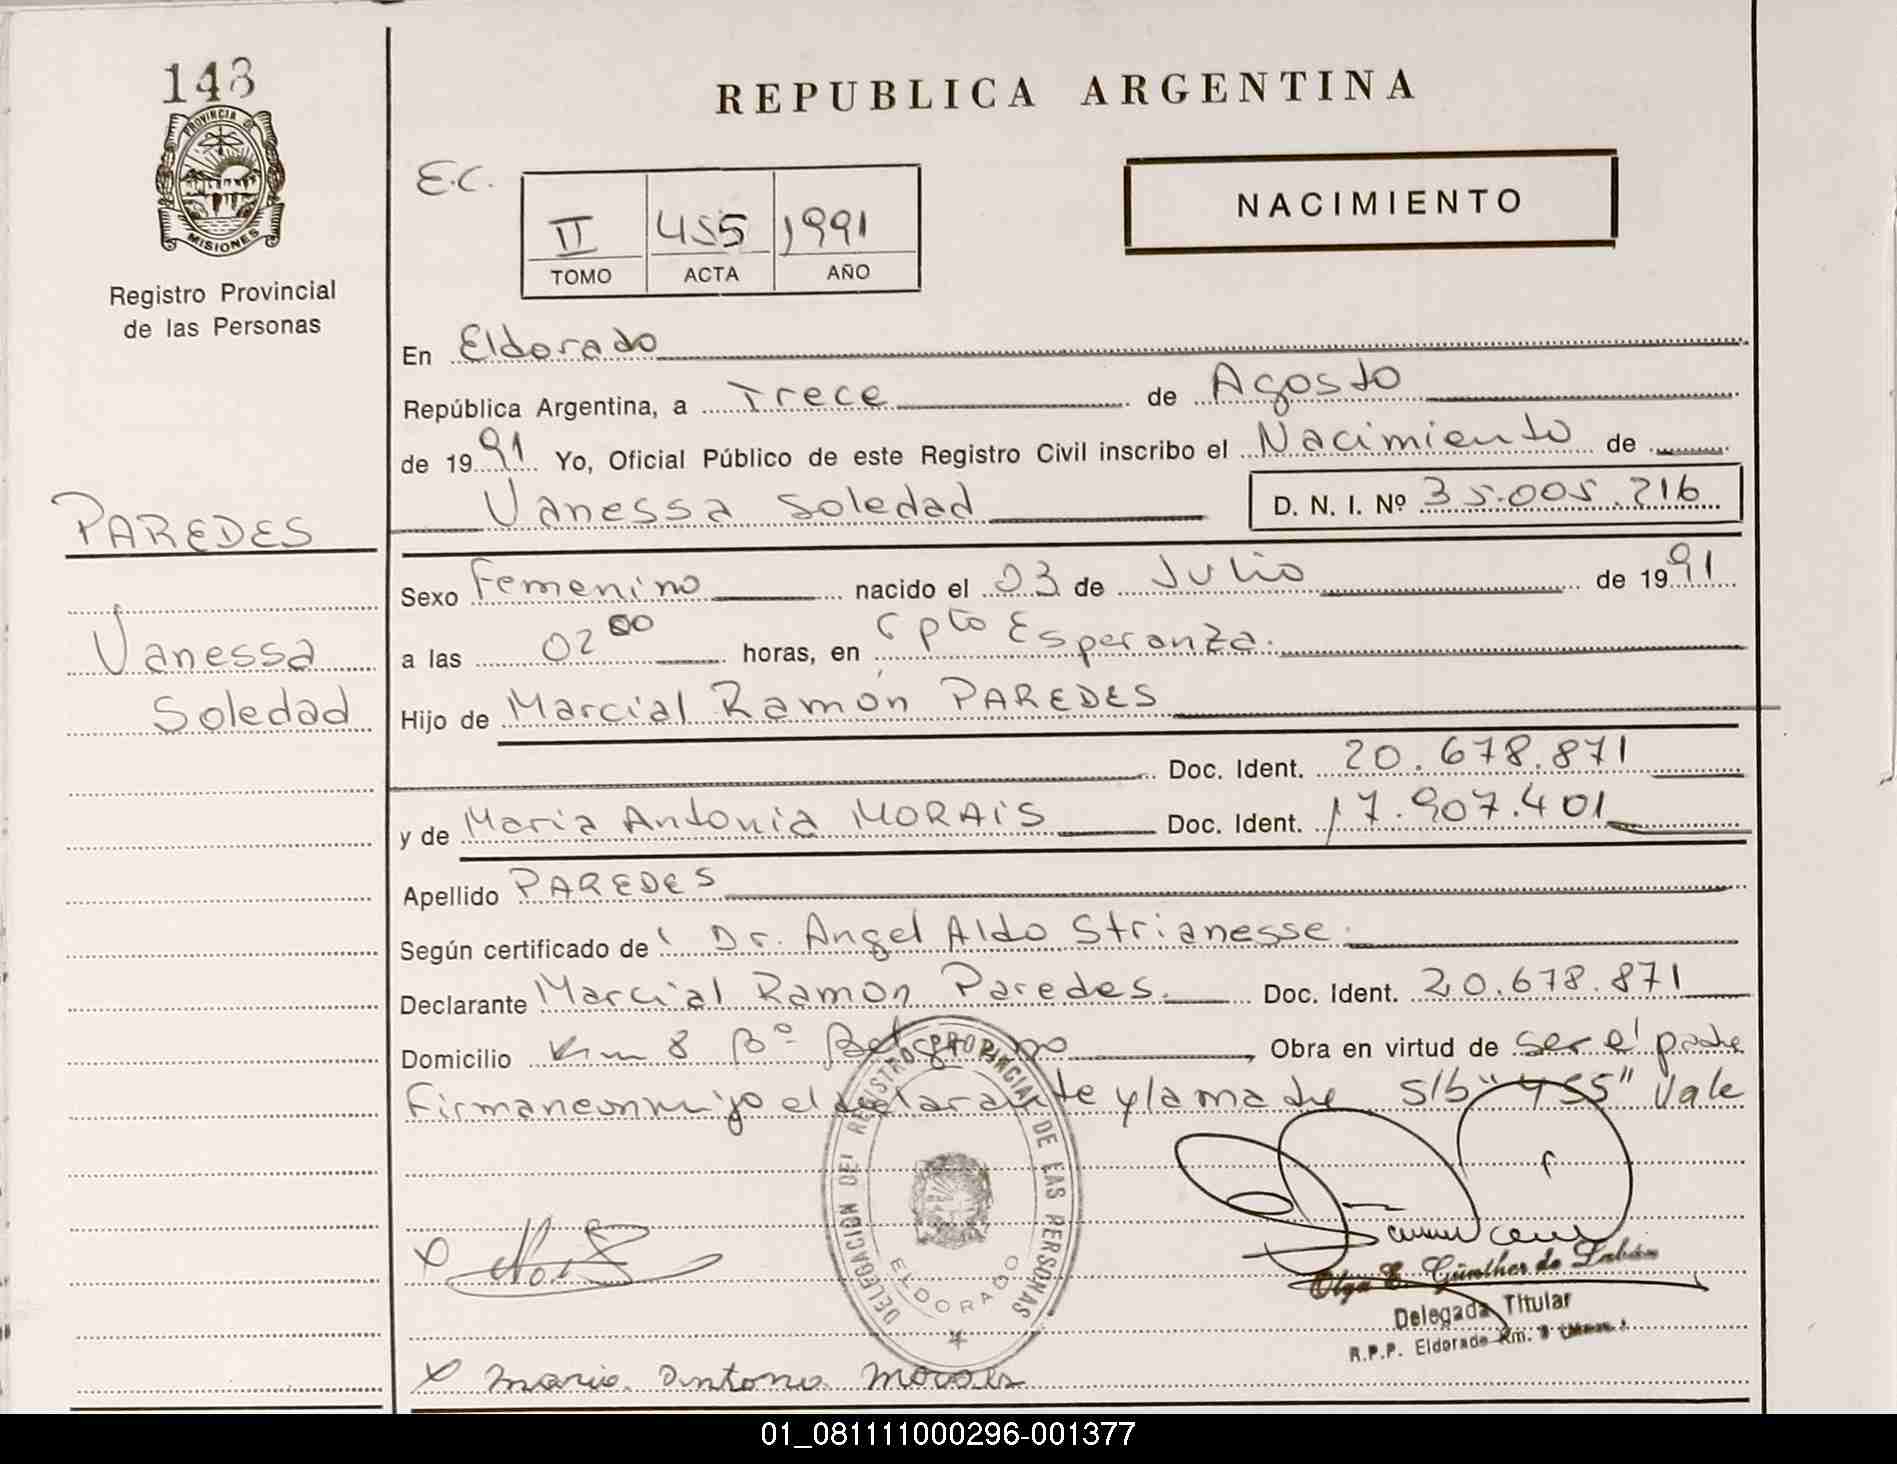 143
PROVINCIA DE
MISIONES
Registro Provincial
de las Personas
PAREDES
Vanessa
Soledad
REPUBLICA ARGENTINA
E.C.
II 455 1991
TOMO ACTA AÑO
NACIMIENTO
En Eldorado
República Argentina, a Trece de Agosto
de 1991 Yo, Oficial Público de este Registro Civil inscribo el Nacimiento de
Vanessa Soledad D. N. I. Nº 35.005.216
Sexo Femenino nacido el 03 de Julio de 1991
a las 02 00 horas, en Cpto Esperanza.
Hijo de Marcial Ramón PAREDES
Doc. Ident. 20.678.871
y de Maria Antonia MORAIS Doc. Ident. 17.907.401
Apellido PAREDES
Según certificado de Dr. Angel Aldo Strianesse.
Declarante Marcial Ramon Paredes. Doc. Ident. 20.678.871
Domicilio Km 8 Bº Belgrano, Obra en virtud de ser el padre
Firman conmigo el declarante y la madre s/b "455" Vale
DELEGACION DEL REGISTRO PROVINCIAL DE LAS PERSONAS
ELDORADO
Olga E. Günther de Labán
Delegada Titular
R.P.P. Eldorado Km.
x
x Maria Antonia Morais
01_081111000296-001377